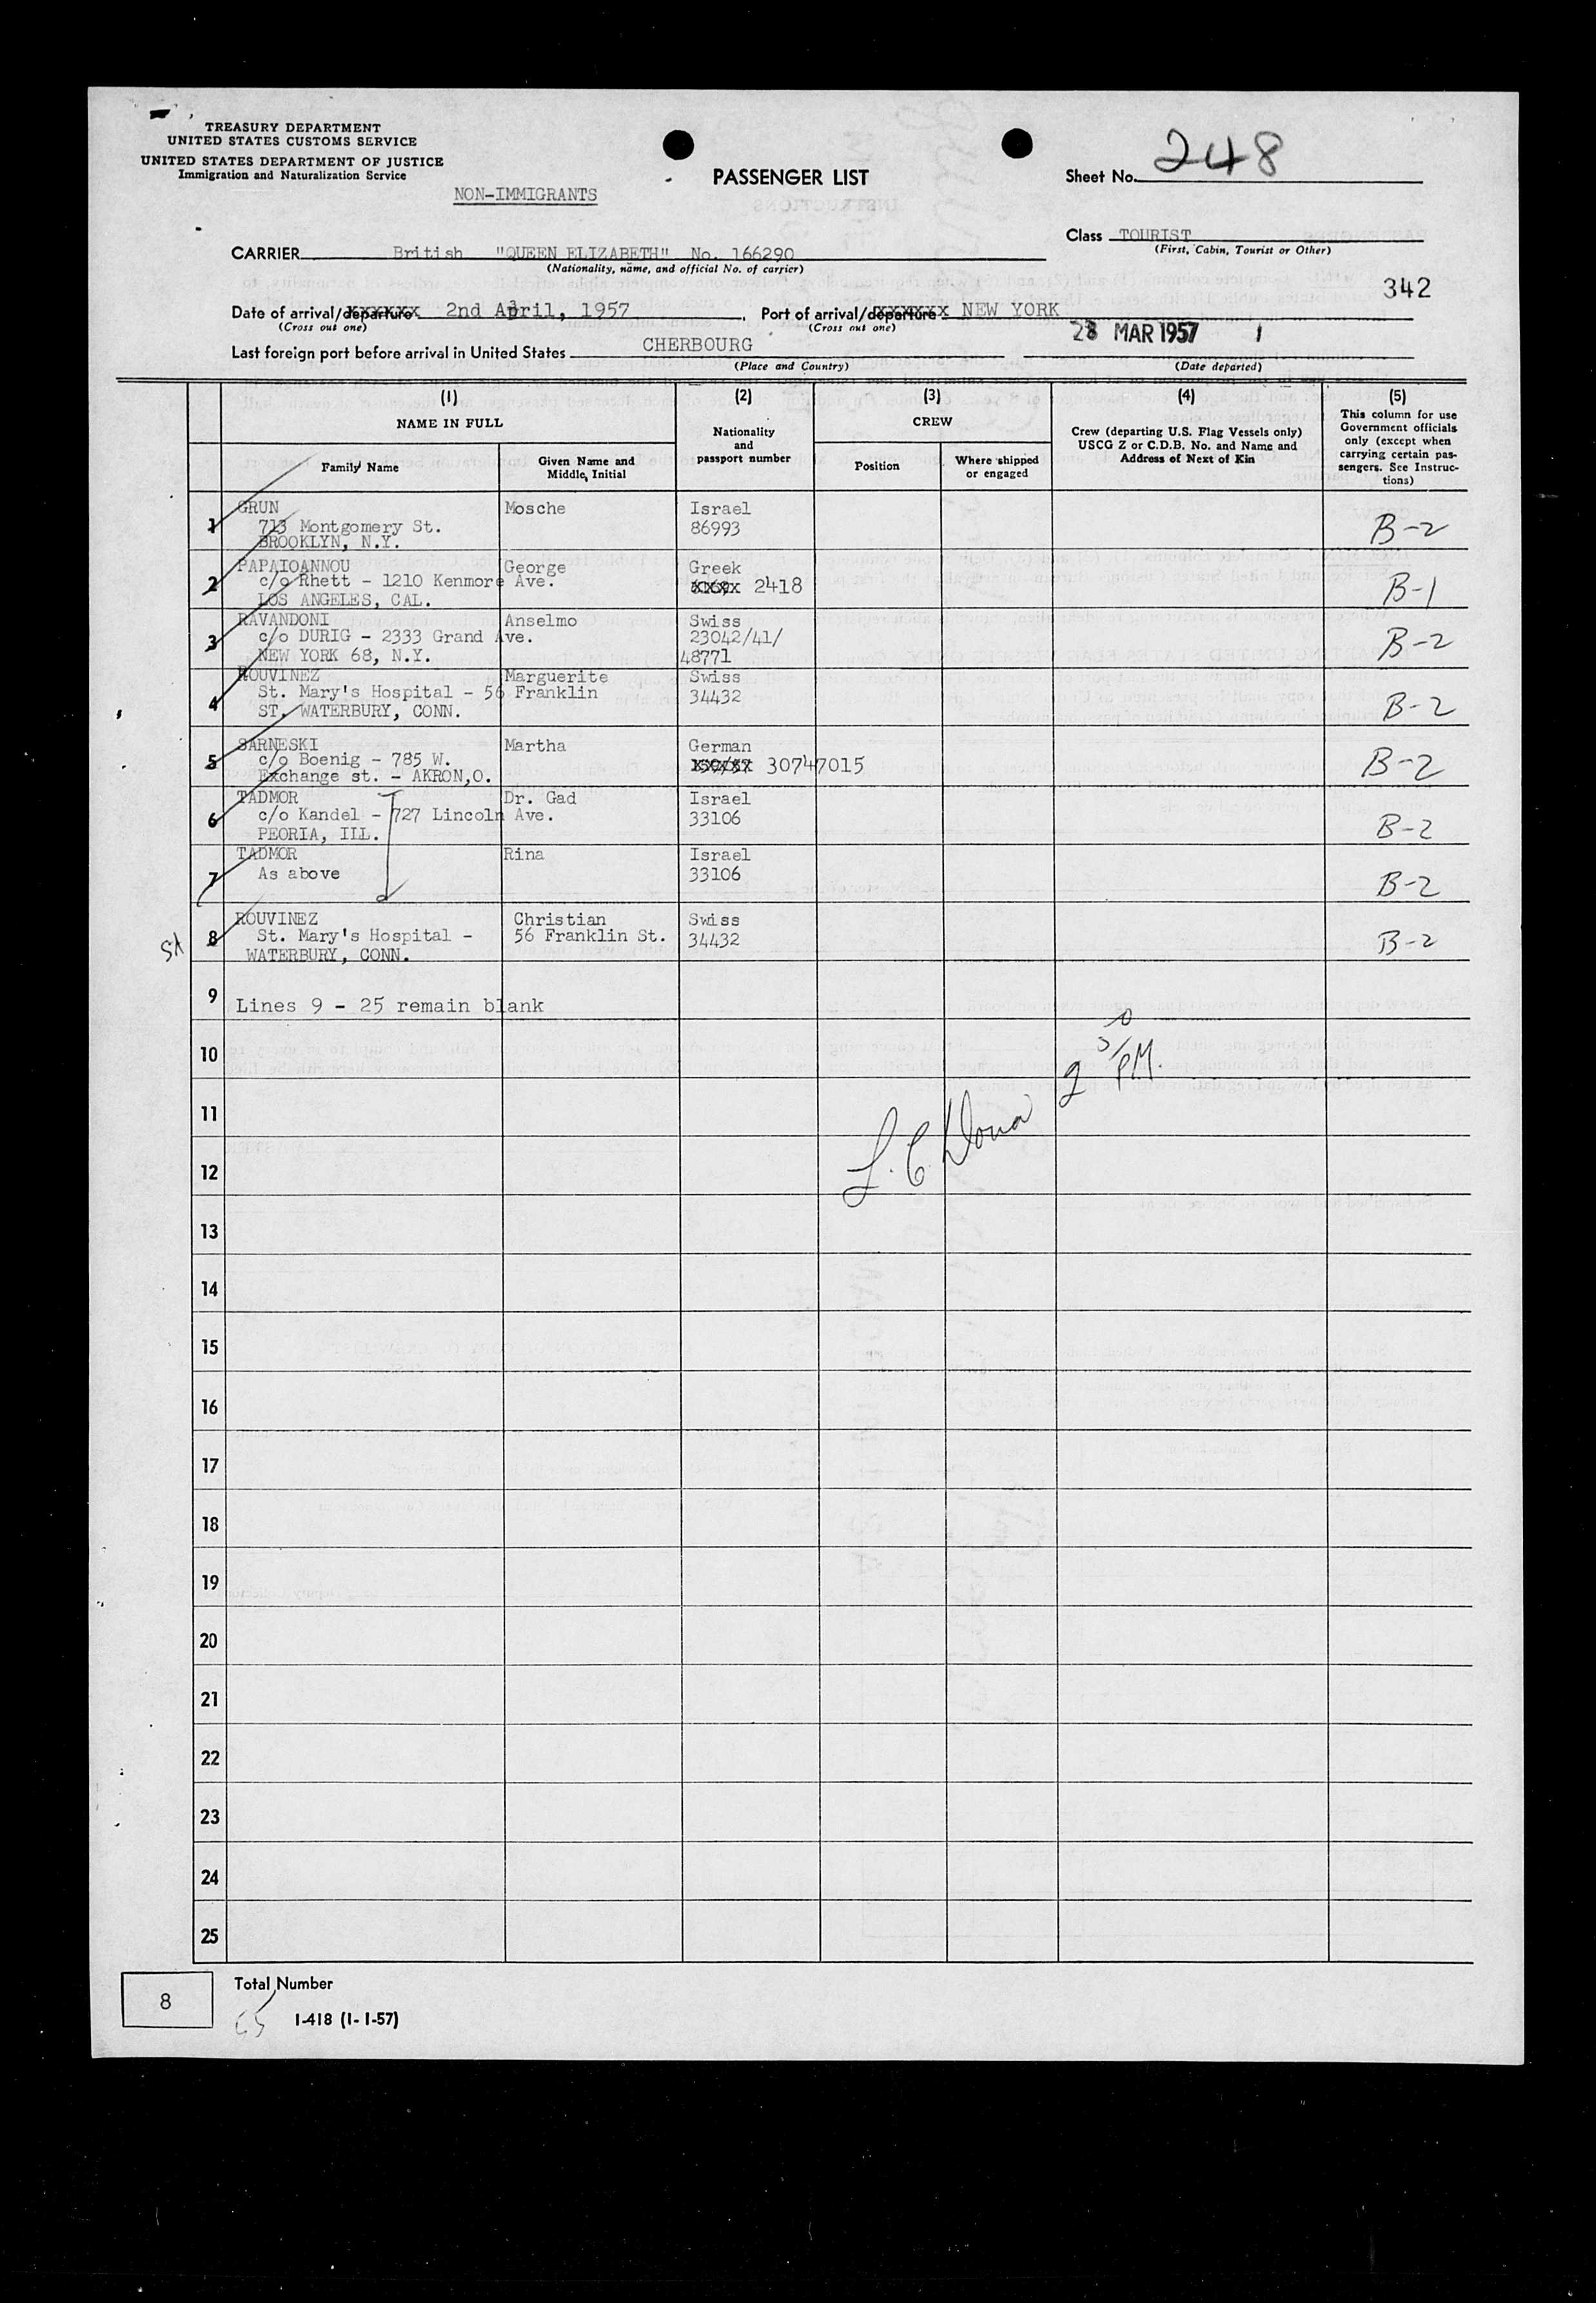 TREASURY DEPARTMENT
UNITED STATES CUSTOMS SERVICE
UNITED STATES DEPARTMENT OF JUSTICE
Immigration and Naturalization Service
NON-IMMIGRANTS
PASSENGER LIST
Sheet No. 248
CARRIER British "QUEEN ELIZABETH" No. 166290
(Nationality, name, and official No. of carrier)
Class TOURIST
(First, Cabin, Tourist or Other)
342
Date of arrival/departure 2nd April, 1957
(Cross out one)
Port of arrival/departure NEW YORK
(Cross out one)
Last foreign port before arrival in United States CHERBOURG
(Place and Country)
28 MAR 1957
(Date departed)
(1)
NAME IN FULL
Family Name
Given Name and
Middle Initial
(2)
Nationality
and
passport number
(3)
CREW
Position
Where shipped
or engaged
(4)
Crew (departing U.S. Flag Vessels only)
USCG Z or C.D.B. No. and Name and
Address of Next of Kin
(5)
This column for use
Government officials
only (except when
carrying certain pas-
sengers. See Instruc-
tions)
1 GRUN Mosche Israel
713 Montgomery St. 86993 B-2
BROOKLYN, N.Y.
2 PAPAIOANNOU George Greek
c/o Rhett - 1210 Kenmore Ave. 2418 B-1
LOS ANGELES, CAL.
3 RAVANDONI Anselmo Swiss
c/o DURIG - 2333 Grand Ave. 23042/41/ B-2
NEW YORK 68, N.Y. 48771
4 ROUVINEZ Marguerite Swiss
St. Mary's Hospital - 56 Franklin 34432 B-2
ST. WATERBURY, CONN.
5 SARNESKI Martha German
c/o Boenig - 785 W. 30747015 B-2
Exchange st. - AKRON,O.
6 TADMOR Dr. Gad Israel
c/o Kandel - 727 Lincoln Ave. 33106 B-2
PEORIA, ILL.
7 TADMOR Rina Israel
As above 33106 B-2
SA 8 ROUVINEZ Christian Swiss
St. Mary's Hospital - 56 Franklin St. 34432 B-2
WATERBURY, CONN.
9 Lines 9 - 25 remain blank
10
11
12
13
14
15
16
17
18
19
20
21
22
23
24
25
8
Total Number
I-418 (1-1-57)